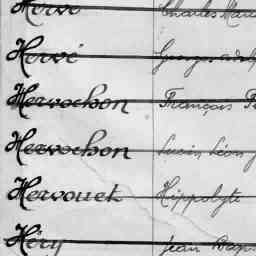 Hervé Charles
Hervé Georges
Hervochon François
Hervochon Lucien Léon
Hervouet Hippolyte
Héry Jean Bap